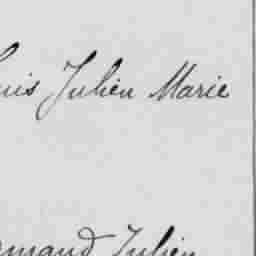 uis Julien Marie
rmand Julien